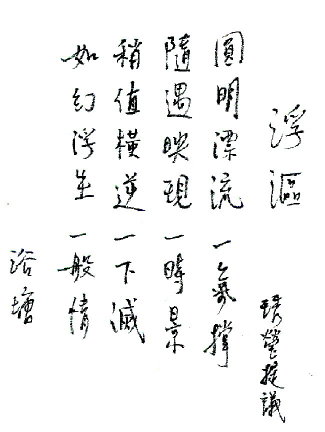 浮漚
琇瑩提議
圓明漂流一氣撐
隨遇映現一時景
稍值橫逆一下滅
如幻浮生一般情
浴塘